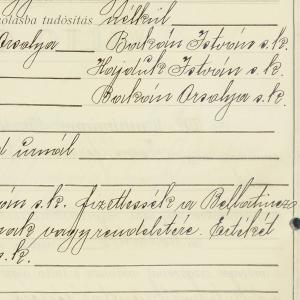 olásba tudósítás nélkül
Orsolya Bakván István s.k.
Hajduk István s.k.
Bakván Orsolya s.k.
d urnál
ván s.k. fizettessék a Bellatincz
nak vagy rendeletére. Értékét
s.k.